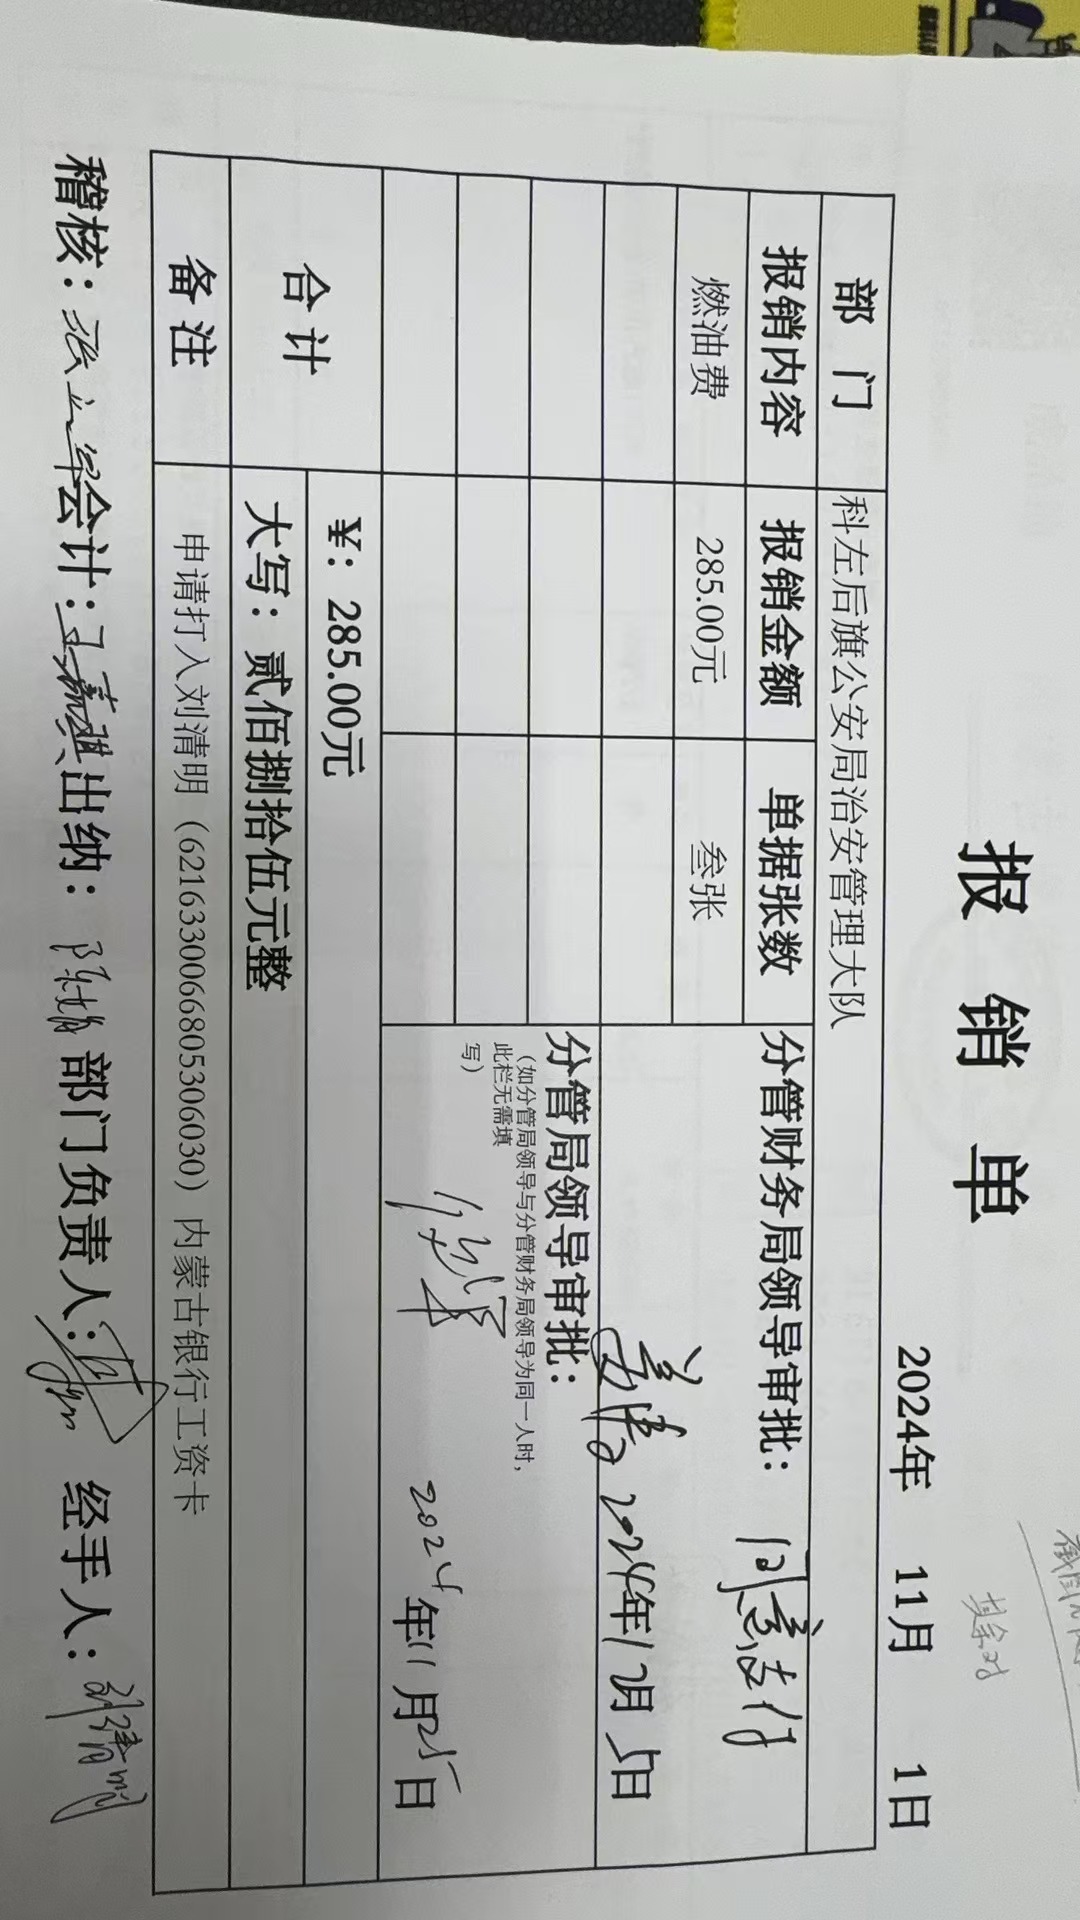 报 销 单
2024年 11月 1日
部 门 科左后旗公安局治安管理大队
报销内容 报销金额 单据张数 分管财务局领导审批：
燃油费 285.00元 叁张 同意支付
2024年12月5日
分管局领导审批：
（如分管局领导与分管财务局领导为同一人时，
此栏无需填
写）
2024年11月25日
合 计 ¥：285.00元
大写：贰佰捌拾伍元整
备 注 申请打入刘清明（6216330066805306030）内蒙古银行工资卡
稽核：张立军 会计： 出纳： 部门负责人： 经手人：刘清明
其余对